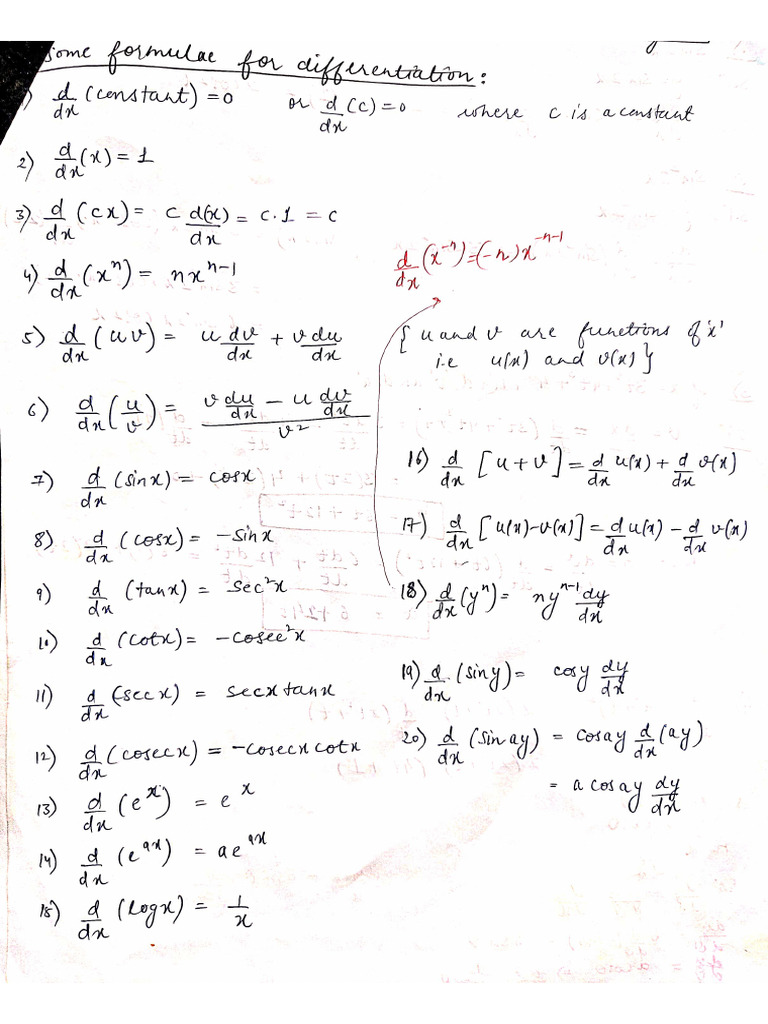 some formulae for differentiation:
1) d/dx (constant) = 0 or d/dx (c) = 0 where c is a constant
2) d/dx (x) = 1
3) d/dx (cx) = c d(x)/dx = c·1 = c
4) d/dx (xⁿ) = nxⁿ⁻¹
d/dx (x⁻ⁿ) = (-n)x⁻ⁿ⁻¹
5) d/dx (uv) = u dv/dx + v du/dx
{ u and v are functions of 'x'
i.e u(x) and v(x)}
6) d/dx (u/v) = (v du/dx - u dv/dx)/v²
7) d/dx (sinx) = cosx
8) d/dx (cosx) = -sinx
9) d/dx (tanx) = sec²x
10) d/dx (cotx) = -cosec²x
11) d/dx (secx) = secxtanx
12) d/dx (cosecx) = -cosecxcotx
13) d/dx (eˣ) = eˣ
14) d/dx (eᵃˣ) = aeᵃˣ
15) d/dx (logx) = 1/x
16) d/dx [u+v] = d/dx u(x) + d/dx v(x)
17) d/dx [u(x)-v(x)] = d/dx u(x) - d/dx v(x)
18) d/dx (yⁿ) = nyⁿ⁻¹ dy/dx
19) d/dx (siny) = cosy dy/dx
20) d/dx (sinay) = cosay d/dx (ay)
= a cosay dy/dx